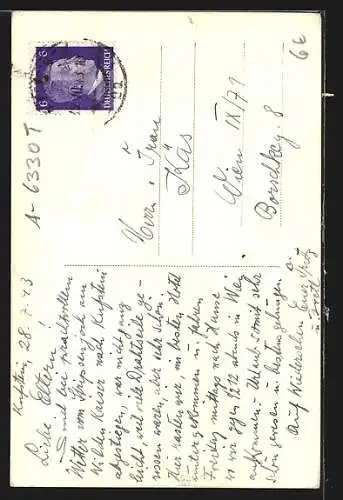 66
6 6
DEUTSCHES REICH
A-6330T
Herrn u. Frau
Käs
Wien IX/71
Borschkeg. 8
Kufstein 28.7.43
Liebe Eltern!
Sind bei prachtvollem
Wetter vom Stripsenjoch am
Wilden Kaiser nach Kufstein
abgestiegen, war nicht ganz
leicht, weil viele Drahtseile ge-
wesen waren, aber sehr schön.
Hier sind wir im besten Hotel
untergekommen u. fahren
Freitag mittags nach Hause
wo wir gegen 1/2 12 abends in Wien
ankommen. Urlaub somit sehr
schön gewesen u. bestens gelungen.
Auf Wiedersehen Euer Fritz
u. Gretl